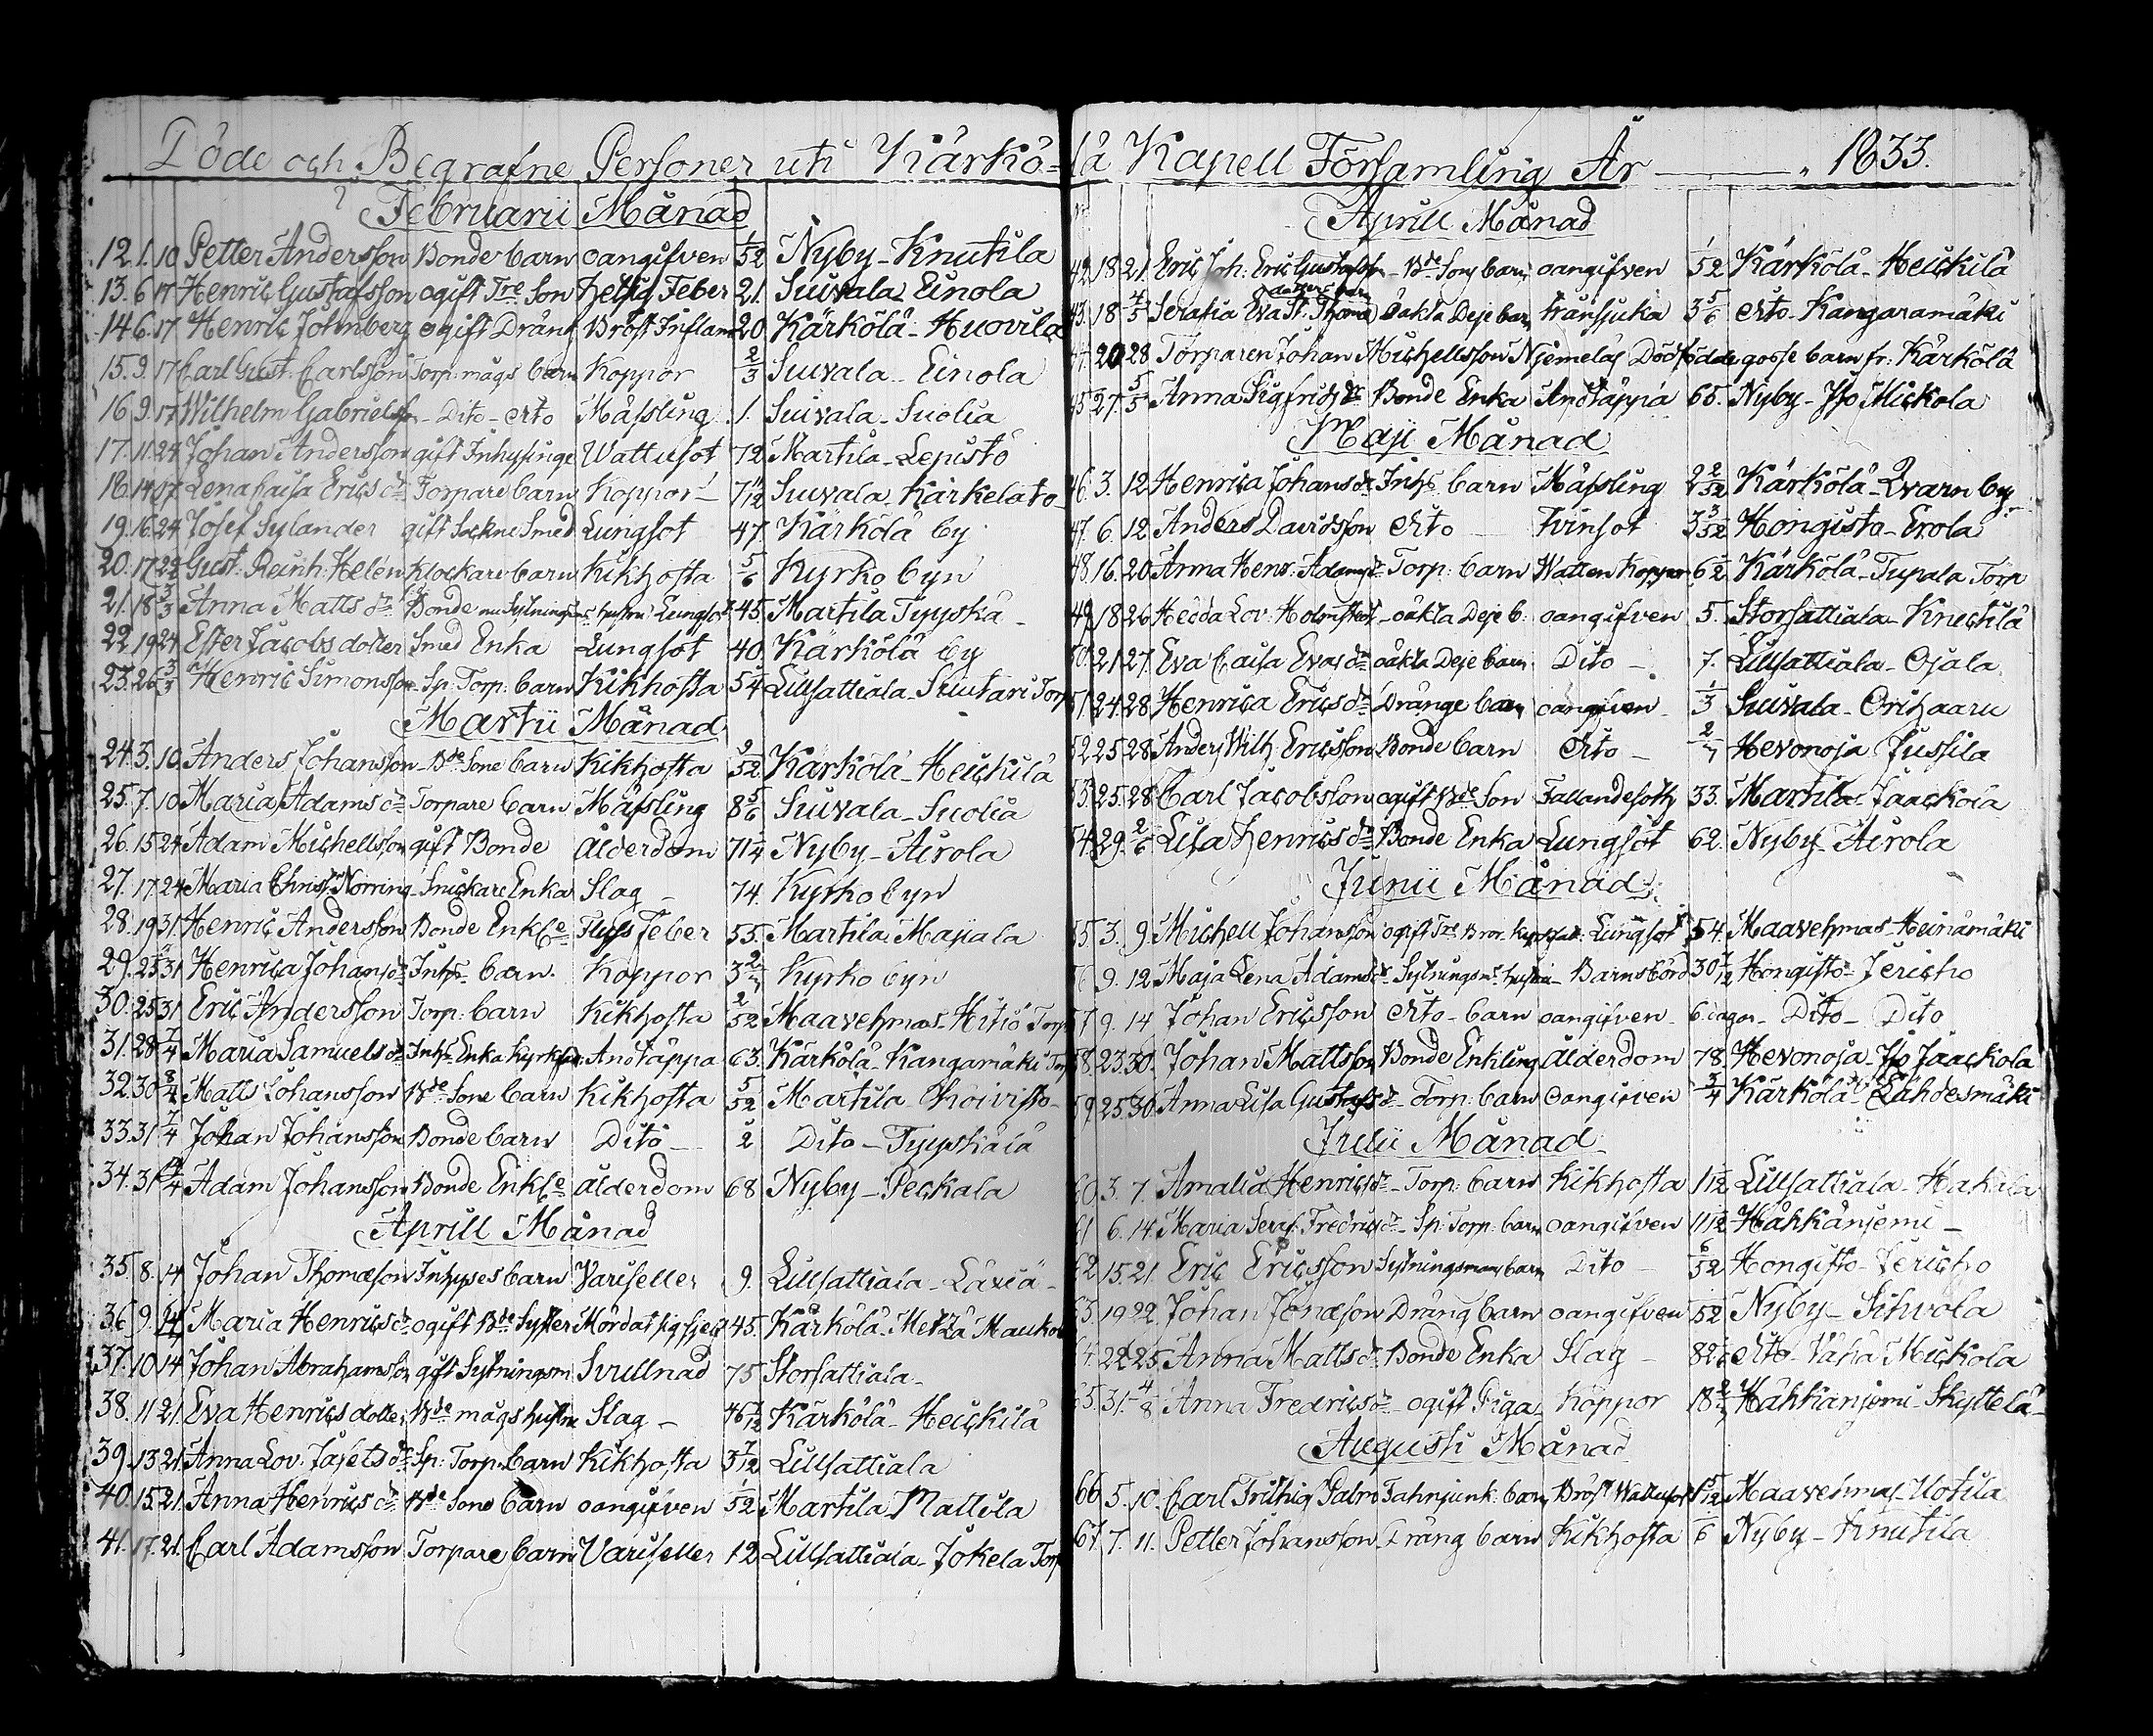 Döde och Begrafne Personer uti Kärkö-
Februarii Månad
12. 1. 10 Petter Andersson Bonde barn oangifven 1/52 Nyby-Knutila
13. 6 17 Henric Gustafsson ogift Tre Son hetsig Feber 21. Suivala Einola
14 6. 17 Henric Johnberg ogift Dräng Bröst Inflam 20 Kärkölä-Huovila
15. 9. 17 Carl Gust. Carlsson Torp: mågs barn Koppor 2/3 Suivala-Einola
16 9. 17 Wilhelm Gabrielss. Dito-dito Mässling 1. Suivala-Suolia
17. 11. 24 Johan Andersson gift Inhysinge Wattusot 72 Martila-Lepistö
18. 14 17 Lena Caisa Erics dr Torpare barn Koppor 7 11/12 Suivala Kärkelato
19. 16. 24 Josef Sylander gift Sockne Smed Lungsot 47. Kärkölä by
20. 17 22 Gust. Reinh. Helén Klockare barn Kikhosta 5/6 Kyrko byn
21. 18 3/3 Anna Matts dr Bonde nu Sytnings hustru Lungsot 45. Martila Tyyskä
22 19 24 Ester Jacobs dotter Smed Enka Lungsot 40. Kärkölä by
23. 26 3/3 Henric Simonsson Sp: Torp: barn Kikhosta 5/4 Lillsattiala-Suutari Torp
Martii Månad
24. 3. 10. Anders Johansson Bde Sone barn Kikhosta 9/52 Kärkölä-Heickilä
25. 7. 10 Maria Adams dr Torpare barn Mässling 8 5/6 Suivala-Suolia
26. 15 24 Adam Michellsson gift Bonde ålderdom 71 1/4 Nyby-Airola
27. 17. 24 Maria Christ. Norring Snickare Enka Slag 74. Kyrko byn
28. 19 31 Henric Andersson Bonde Enkle Flyss Feber 55. Martila Majiala
29. 25 31 Henrica Johans dr Inhs barn. Koppor 3 Kyrko byn
30. 25 31 Eric Andersson Torp: barn Kikhosta 2/52 Maavehmas-Hitiö Torp
31. 28 7/4 Maria Samuels dr Inhs Enka Andtäppa 63. Kärkölä-Kangamäki Torp
32. 30 8/4 Matts Johansson Bde Sone barn Kikhosta 5/52 Martila Choivisto
33. 31 7/4 Johan Johansson Bonde barn Dito 2 Dito-Tyyskälä
34. 31 14/4 Adam Johansson Bonde Enkle ålderdom 68 Nyby-Peckala
Aprill Månad
35. 8. 14 Johan Thomasson Inhyses barn Variseller 9. Lillsattiala-Laxiä
36 9. 14 Maria Henrics dr ogift Bde Syster Mördat sig sjelf 45. Kärkölä-Metzä Mauko
37. 10 14 Johan Abrahamsson gift Sytningsm Svullnad 75 Storsattiala
38. 11 21. Eva Henrics dotter Bde mågs hustru Slag 46 1/12 Kärkölä-Heickilä
39. 13 21. Anna Lov. Josefs dr Sp: Torp. barn Kikhosta 3 7/12 Lillsattiala
40. 15. 21. Anna Henrics dr Bde Sone barn oangifven 1/52 Martila Mattila
41. 17. 21. Carl Adamsson Torpare barn Variseller 12 Lillsattiala-Jokela Torp
lä Kapell Församling År 1833.
Aprill Månad
42 18 21. Eric Joh. Eric Gustafsson Bde Sons barn oangifven 1/52 Kärkölä-Heickilä
dotters barn
43. 18 4/5 Serafia Eva St. Thoma oäkta Deje barn 3 5/6 dito-Kangaramäki
44 20 28 Torparen Johan Michellsson Njemeläs Dödfödde gosse barn fr: Kärkölä
45 27. 5/5 Anna Sigfrids dr Bonde Enka Andtäppa 65. Nyby-Iso Mickola
Maji Månad
46. 3. 12 Henrica Johans dr Inhs barn Mässling 2 2/52 Kärkölä-Qvarn by
47. 6. 12. Anders Davidsson dito Tvinsot 3 3/52 Hongisto-Erola
48. 16. 20. Anna Henr. Adams dr Torp: barn Watten Koppor 6 1/2 Kärkölä-Tupala Torp
49. 18 26 Hedda Lov. oäkta Deje b. oangifven 5. Storsattiala-Knecktilä
50. 21 27. Eva Caisa Evas dr oäkta Deje barn Dito 7. Lillsattiala-Ojala
51. 24. 28 Henrica Erics dr Dränge barn oangifven 1/3 Suivala-Orihaaru
52. 25 28 Anders Wilh. Ericsson Bonde barn dito Hevonoja Jussila
53. 25. 28 Carl Jacobsson ogift Bde Son Fallandesoth 33. Martila-Jaackola
54. 29. 2/6 Lisa Henrics dr Bonde Enka Lungsot 62. Nyby-Airola
Junii Månad
55. 3. 9. Michell Johansson ogift Tre Bror Lungsot 54. Maavehmas-Heinämäki
56 9. 12 Maja Lena Adams dr Sytningsms hustru Barnsbörd 30 7/12 Hongisto-Jericho
57 9. 14 Johan Ericsson dito-barn oangifven 6 dagar Dito-Dito
58. 23. 30. Johan Mattsson Bonde Enkling ålderdom 78. Hevonoja-Iso Jaackola
59. 25. 30 Anna Lisa Gustafs dr Torp. barn oangifven 3/4 Kärkölä-Lähdesmäki
Julii Månad
60 3. 7. Amalia Henrics dr Torp: barn Kikhosta 1 1/12 Lillsattiala-Hakala
61 6. 14. Maria Seraf. Fredrics dr Sp: Torp: barn oangifven 11/12 Håkkänjemi
62 15 21. Eric Ericsson Sytningsmans barn Dito 6/52 Hongisto-Jericho
63. 19 22. Johan Jonæson Dräng barn oangifven 52 Nyby-Sihvola
64. 22 25. Anna Matts dr Bonde Enka Slag 82 dito-Vähä Mickola
65. 31. 4/8 Anna Fredrics dr ogift Piga Koppor 18 Håkkänjemi-Skyttelä
Augusti Månad
66 5. 10. Carl Fahnjunk: barn Bröst Wattusot 5/12 Maavehmas-Uotila
67 7. 11. Petter Johansson Dräng barn Kikhosta 6 Nyby-Knutila